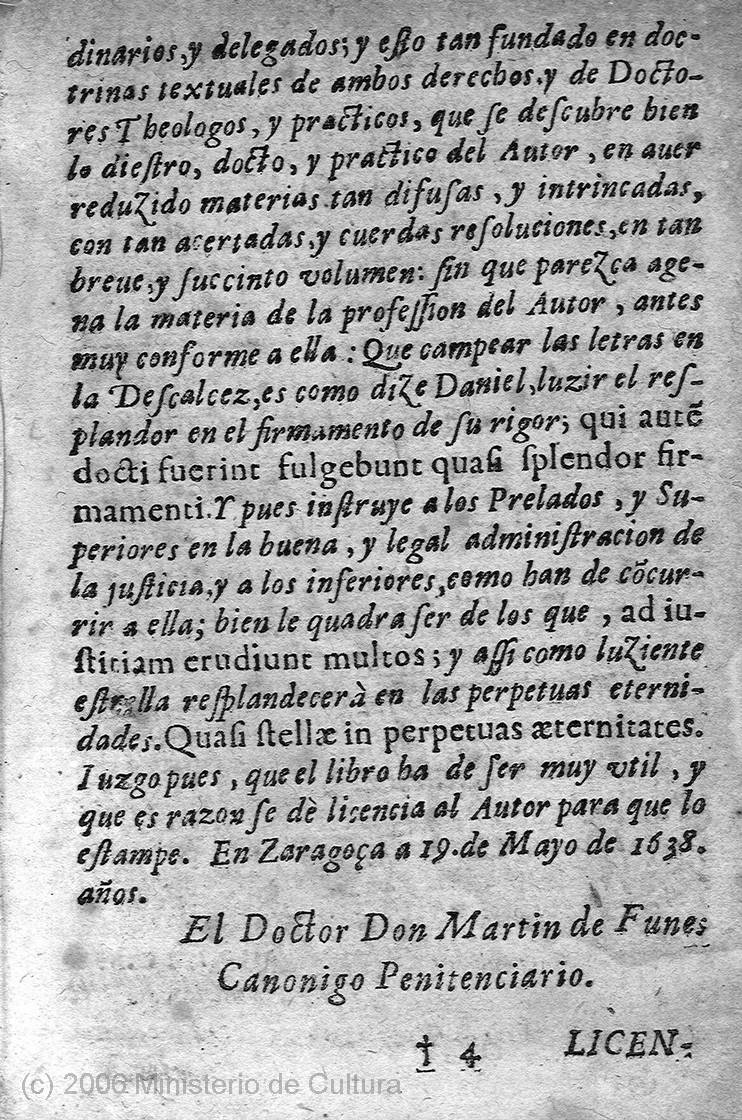 dinarios, y delegados; y eſto tan fundado en doc-
trinas textuales de ambos derechos, y de Docto-
res Theologos, y practicos, que ſe deſcubre bien
lo dieſtro, docto, y practico del Autor, en auer
reduzido materias tan difuſas, y intrincadas,
con tan acertadas, y cuerdas reſoluciones, en tan
breue, y ſuccinto volumen: ſin que parezca age-
na la materia de la profeſſion del Autor, antes
muy conforme a ella: Que campear las letras en
la Deſcalcez, es como dize Daniel, luzir el reſ-
plandor en el firmamento de ſu rigor; qui autẽ
docti fuerint fulgebunt quaſi ſplendor fir-
mamenti. Y pues inſtruye a los Prelados, y Su-
periores en la buena, y legal adminiſtracion de
la juſticia, y a los inferiores, como han de cõcur-
rir a ella; bien le quadra ſer de los que, ad iu-
ſtitiam erudiunt multos; y aſſi como luziente
eſtrella reſplandecerà en las perpetuas eterni-
dades. Quaſi ſtellæ in perpetuas æternitates.
Iuzgo pues, que el libro ha de ſer muy vtil, y
que es razon ſe dè licencia al Autor para que lo
eſtampe. En Zaragoça a 19. de Mayo de 1638.
años.
El Doctor Don Martin de Funes
Canonigo Penitenciario.
† 4 LICEN-
(c) 2006 Ministerio de Cultura